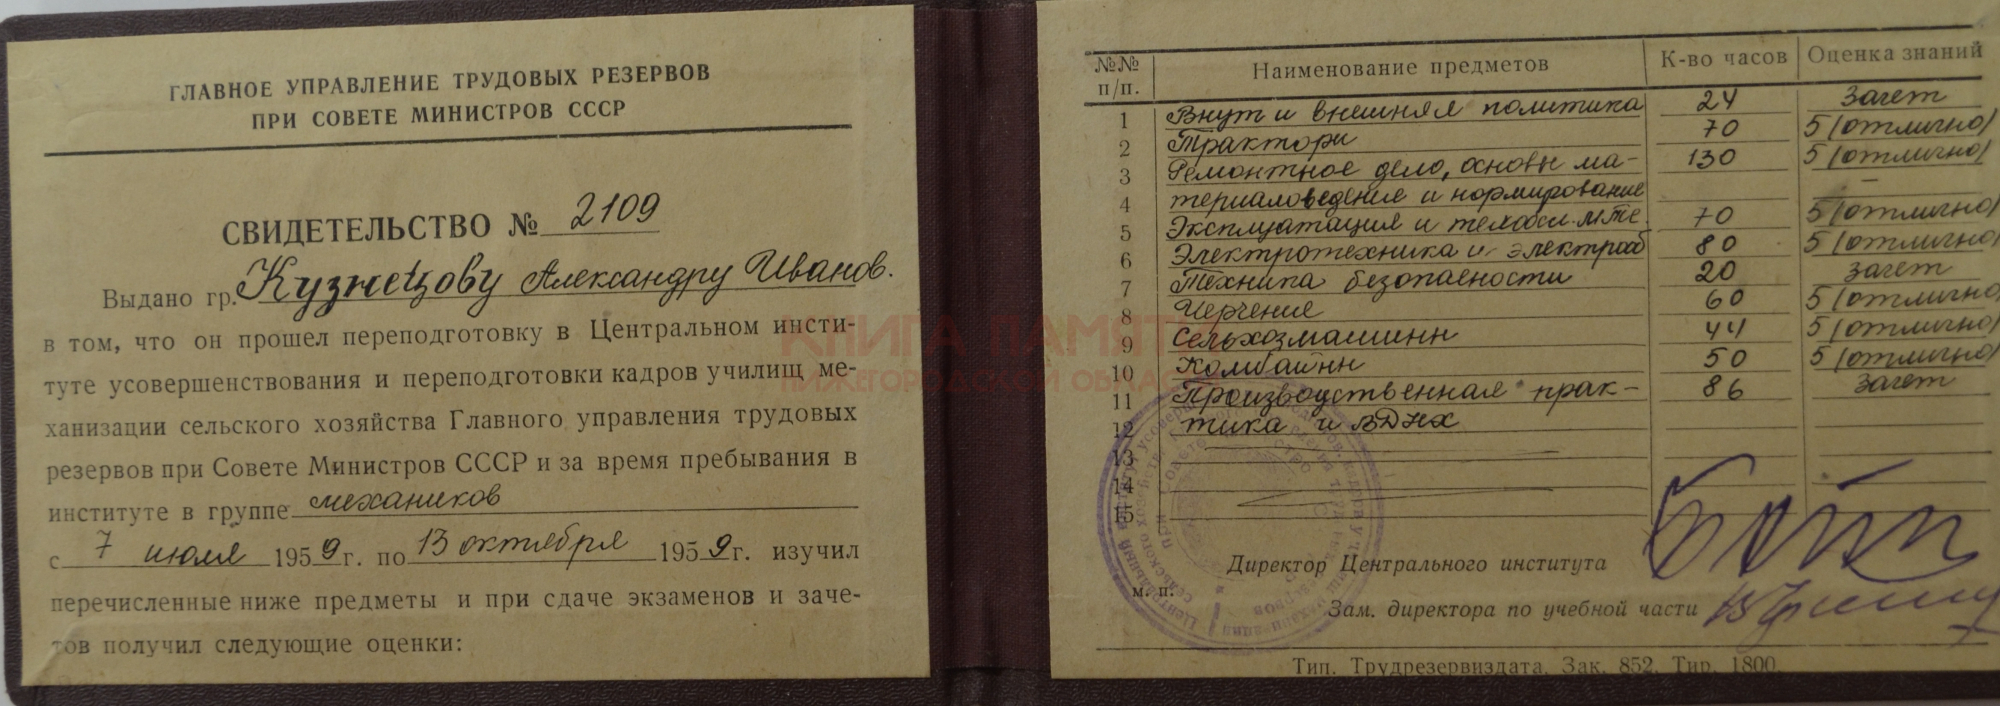 ГЛАВНОЕ УПРАВЛЕНИЕ ТРУДОВЫХ РЕЗЕРВОВ
ПРИ СОВЕТЕ МИНИСТРОВ СССР
СВИДЕТЕЛЬСТВО № 2109
Выдано гр. Кузнецову Александру Иванов.
в том, что он прошел переподготовку в Центральном инсти-
туте усовершенствования и переподготовки кадров училищ ме-
ханизации сельского хозяйства Главного управления трудовых
резервов при Совете Министров СССР и за время пребывания в
институте в группе механиков
с 7 июля 1959 г. по 13 октября 1959 г. изучил
перечисленные ниже предметы и при сдаче экзаменов и заче-
тов получил следующие оценки:
№№ п/п. Наименование предметов К-во часов Оценка знаний
1 Внут и внешняя политика 24 Зачет
2 Трактори 70 5 (отлично)
3 Ремонтное дело, основы ма- 130 5 (отлично)
4 териаловедения и нормирование –
5 Эксплуатация и техобсл. МТС. 70 5 (отлично)
6 Электротехника и электрооб 80 5 (отлично)
7 Техника безопасности 20 Зачет
8 Черчение 60 5 (отлично)
9 Сельхозмашины 44 5 (отлично)
10 Комбайны 50 5 (отлично)
11 Производственная прак- 86 Зачет
12 тика и ВДНХ
13
14
15
Директор Центрального института
м. п.
Зам. директора по учебной части
Тип. Трудрезервиздата. Зак. 852. Тир. 1800
КНИГА ПАМЯТИ
НИЖЕГОРОДСКОЙ ОБЛАСТИ